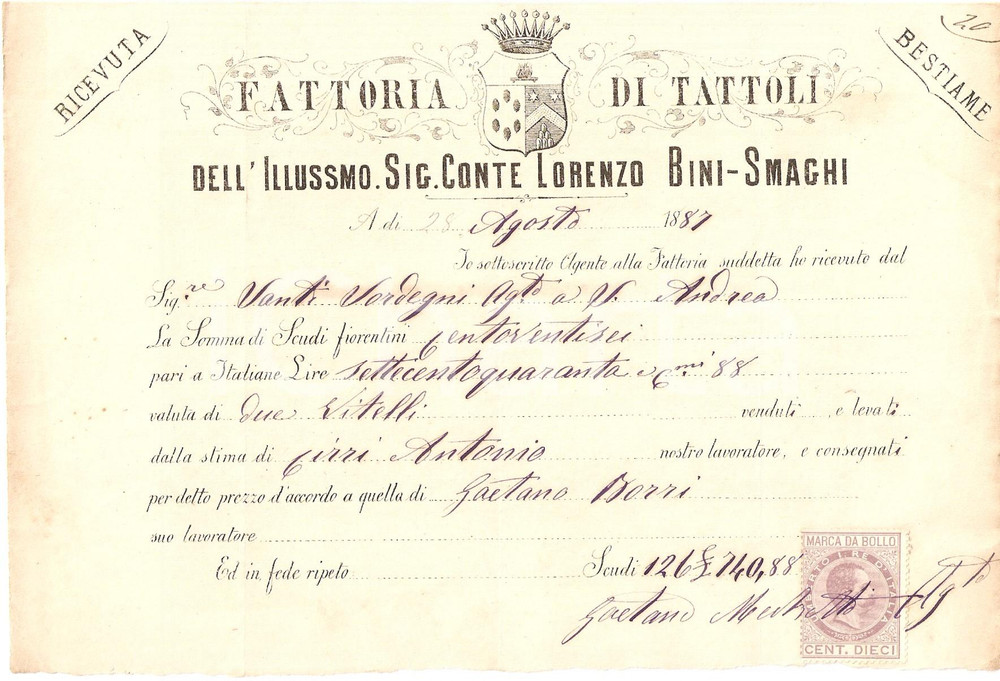 RICEVUTA
BESTIAME
20
FATTORIA DI TATTOLI
DELL'ILLUSSMO. SIG. CONTE LORENZO BINI-SMAGHI
A dì 28 Agosto 1887
Io sottoscritto Agente alla Fattoria suddetta ho ricevuto dal
Sig.re Santi Sordegni Agto a S. Andrea
La Somma di Scudi fiorentini Centoventisei
pari a Italiane Lire settecentoquaranta e Cmi 88
valuta di due Vitelli venduti e levati
dalla stima di Cirri Antonio nostro lavoratore, e consegnati
per detto prezzo d'accordo a quella di Gaetano Borri
suo lavoratore
Ed in fede ripeto Scudi 126 £ 740,88
Gaetano Agto
MARCA DA BOLLO
UMBERTO I. RE D'ITALIA
CENT. DIECI